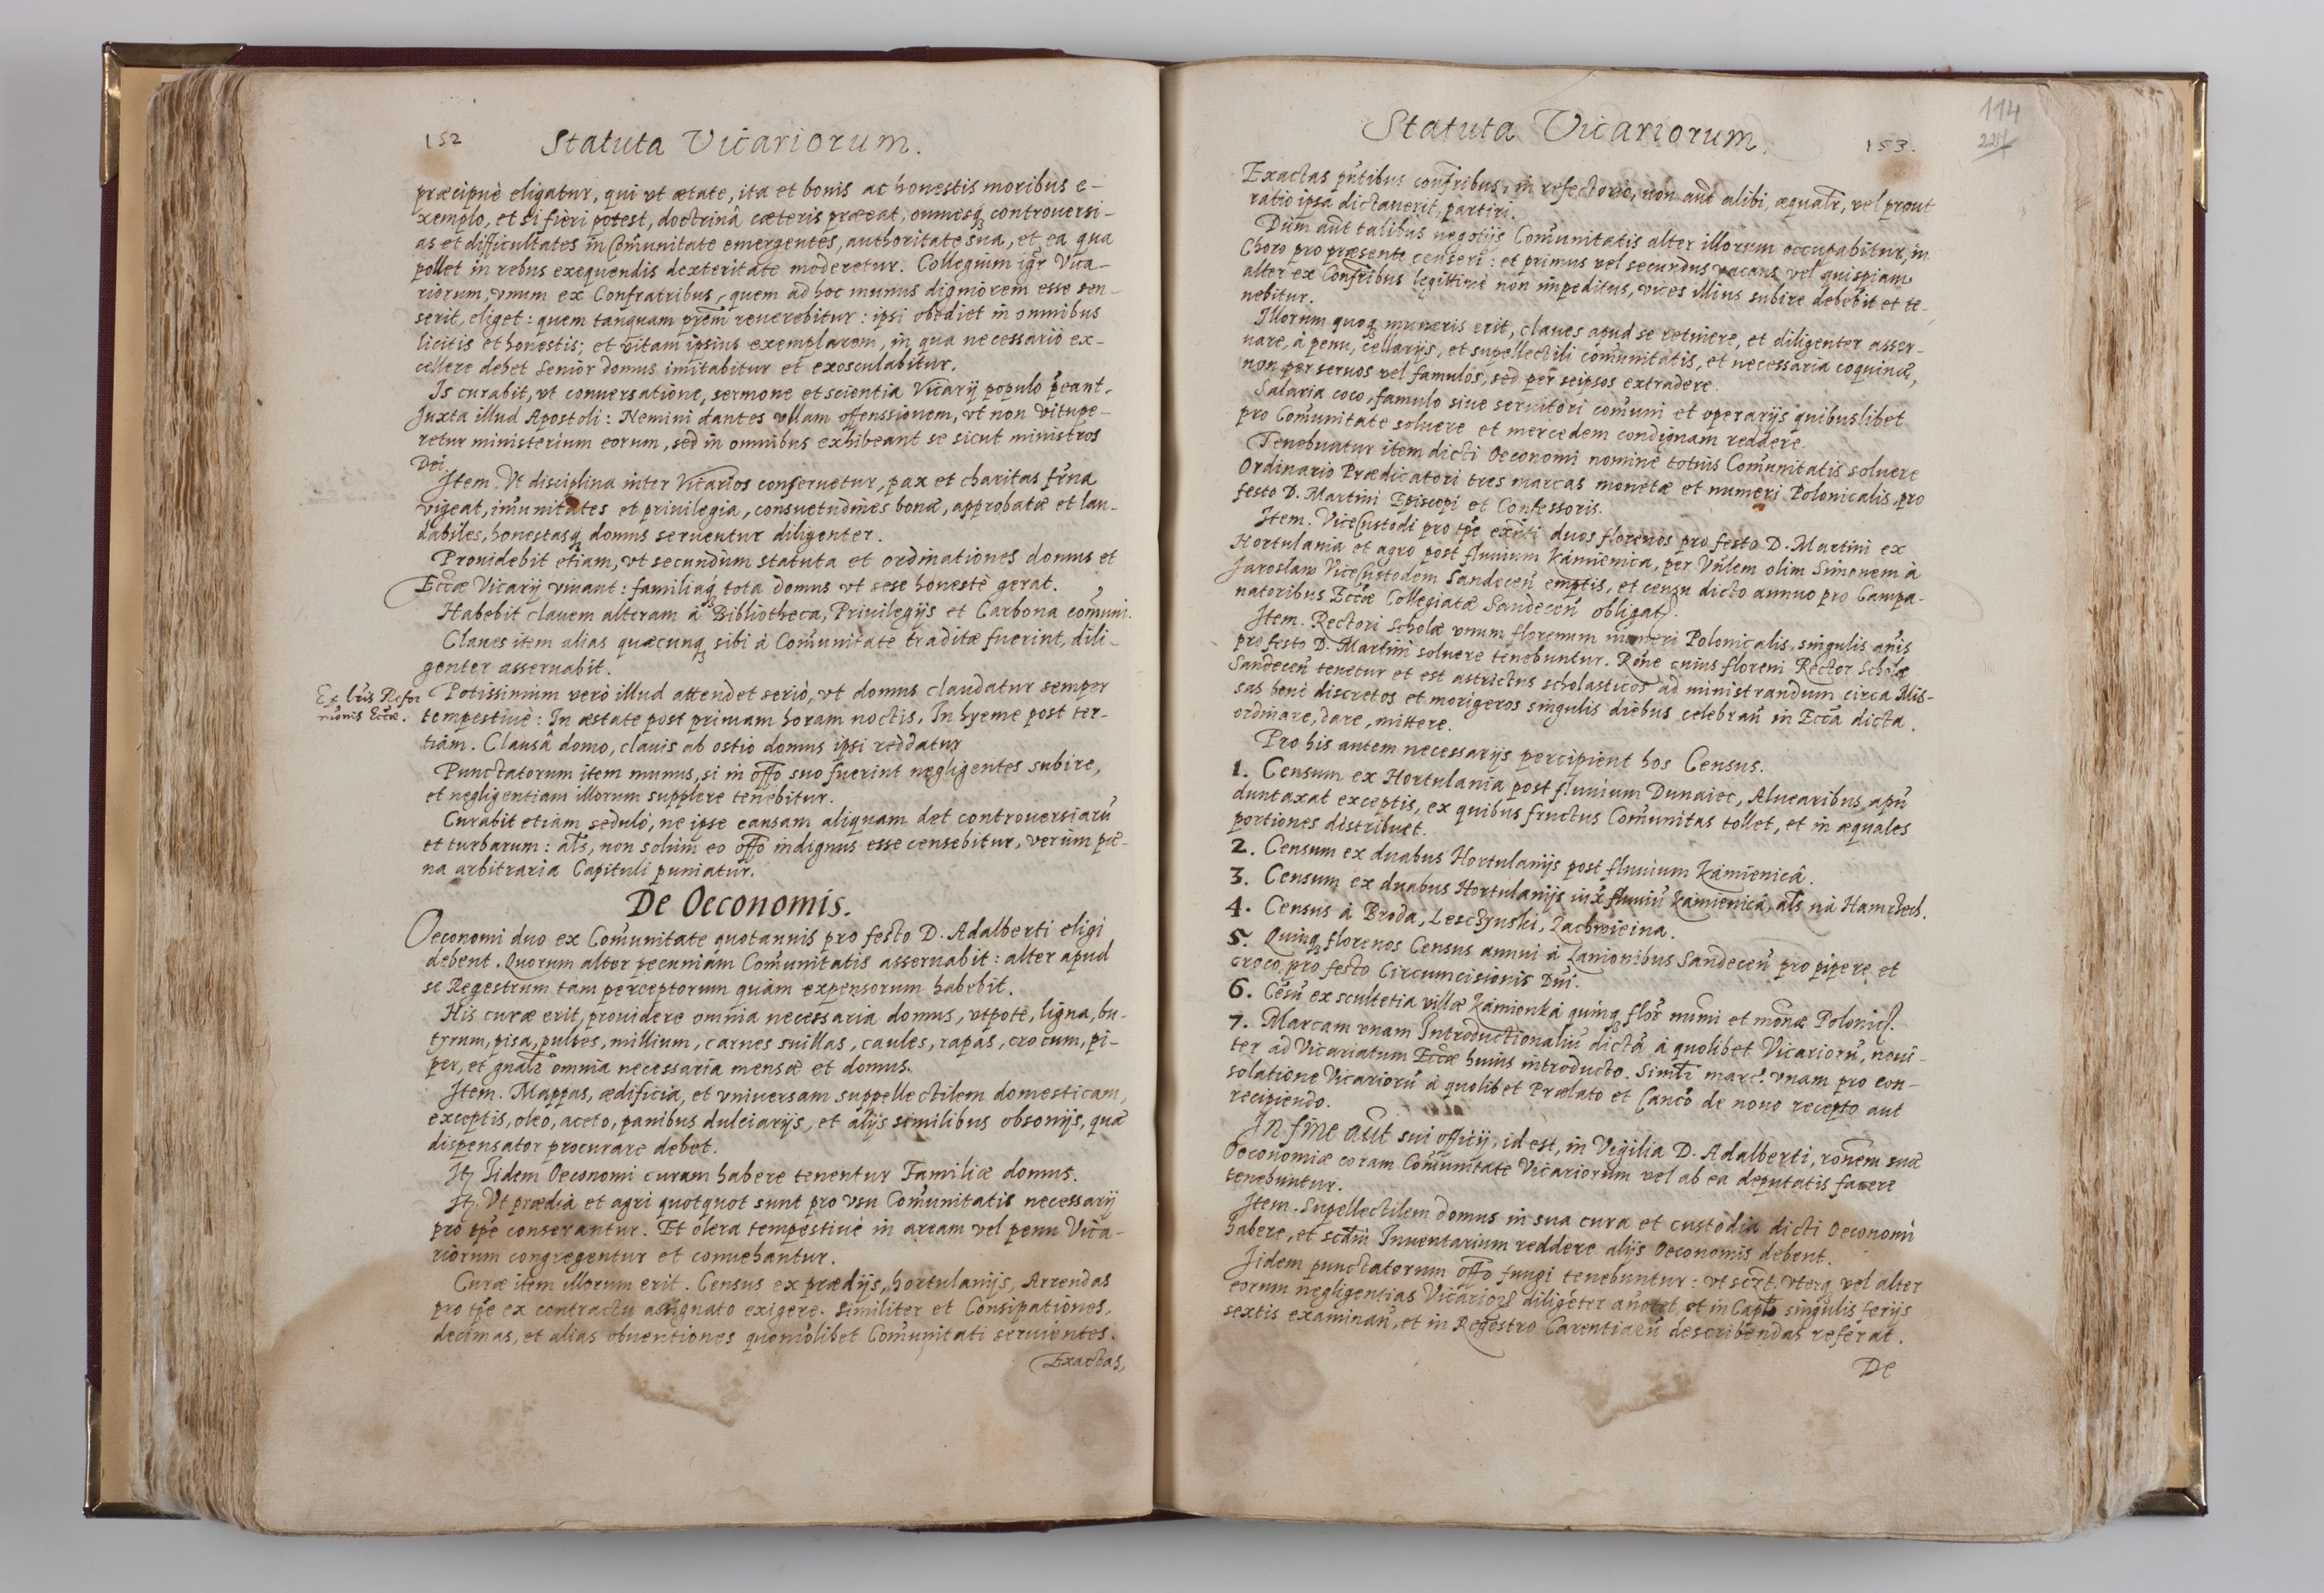 152 Statuta Vicariorum.
præcipuè eligatur, qui vt ætate, ita et bonis ac honestis moribus e-
xemplo, et si fieri potest, doctrinâ cæteris præeat, omnesq controuersi-
as et difficultates in Com̃unitate emergentes, authoritate sua, et ea qua
pollet in rebus exequendis dexteritate moderetur. Collegium igr̃ Vica-
riorum, vnum ex Confratribus, quem ad hoc munus digniorem esse sen-
serit, eliget: quem tanquam prẽm reuerebitur: ipsi obediet in omnibus
licitis et honestis; et vitam ipsius exemplarem, in qua necessariò ex-
cellere debet senior domus imitabitur et exosculabitur.
Is curabit, vt conuersatione, sermone et scientia Vicarij populo p̃eant.
Juxta illud Apostoli: Nemini dantes vllam offenssionem, vt non vitupe-
retur ministerium eorum, sed in omnibus exhibeant se sicut ministros
Dei.
Item. Vt disciplina inter Vicarios conseruetur, pax et charitas fr̃na
vigeat, im̃unitates et priuilegia, consuetudines bonæ, approbatæ et lau-
dabiles, honestasq domus seruentur diligenter.
Prouidebit etiam, vt secundùm statuta et ordinationes domus et
Ecc̃æ Vicarij viuant: familiaq tota domus vt sese honestè gerat.
Habebit clauem alteram à Bibliotheca, Priuilegijs et Carbona com̃uni.
Claues item alias quæcunq sibi à Com̃unitate traditæ fuerint, dili-
genter asseruabit.
Ex lr̃is Refor
m̃onis Ecc̃æ.
Potissimùm verò illud attendet seriò, vt domus claudatur semper
tempestiuè: In æstate post primam horam noctis, In hyeme post ter-
tiam. Clausâ domo, clauis ab ostio domus ipsi reddatur
Punctatorum item munus, si in off̃o suo fuerint negligentes subire,
et negligentiam illorum supplere tenebitur.
Curabit etiam sedulò, ne ipse causam aliquam det controuersiarũ
et turbarum: al̃s, non solùm eo off̃o indignus esse censebitur, verùm pœ-
na arbitraria Capituli puniatur.
De Oeconomis.
Oeconomi duo ex Com̃unitate quotannis pro festo D. Adalberti eligi
debent. Quorum alter pecuniam Com̃unitatis asseruabit: alter apud
se Regestrum tam perceptorum quàm expensorum habebit.
His curæ erit, prouidere omnia necessaria domus, vtpote, ligna, bu-
tyrum, pisa, pultes, millium, carnes suillas, caules, rapas, crocum, pi-
per, et gñalr̃ omnia necessaria mensæ et domus.
Item. Mappas, ædificia, et vniuersam suppellectilem domesticam,
exceptis, oleo, aceto, panibus dulciarijs, et alijs similibus obsonijs, quæ
dispensator procurare debet.
It. Iidem Oeconomi curam habere tenentur Familiæ domus.
It. Vt prædia et agri quotquot sunt pro vsu Com̃unitatis necessarij
pro tp̃e conserantur. Et olera tempestiuè in aream vel penu Vica-
riorum congregentur et conuehantur.
Curæ item illorum erit. Census ex prædijs, hortulanijs, Arrendas
pro tp̃e ex contractu assignato exigere. Similiter et Consipationes,
decimas, et alias obuentiones quomolibet Com̃unitati seruientes.
Exactas,
Statuta Vicariorum. 153.
114
Exactas pñtibus confr̃ibus, in refectorio, non aũt alibi, æqualr̃, vel prout
ratio ipsa dictauerit, partiri.
Dum aũt talibus negotijs Com̃unitatis alter illorum occupabitur, in
Choro pro præsente censeri: et primus vel secundus vacans vel quispiam
alter ex Confr̃ibus legittimè non impeditus, vices illius subire debebit et te-
nebitur.
Illorum quoq muneris erit, claues apud se retinere, et diligenter asser-
uare, à penu, cellarijs, et supellectili com̃unitatis, et necessaria coquinæ,
non per seruos vel famulos, sed per seipsos extradere.
Salaria coco, famulo siue seruitori com̃uni et operarijs quibuslibet
pro Com̃unitate soluere et mercedem condignam reddere.
Tenebuntur item dicti Oeconomi nomine totius Com̃unitatis soluere
Ordinario Prædicatori tres marcas monetæ et numeri Polonicalis, pro
festo D. Martini Episcopi et Confessoris.
Item. ViceCustodi pro tp̃e exñti duos florenos pro festo D. Martini ex
Hortulania et agro post fluuium Kamienica, per Vñlem olim Simonem à
Jaroslaw ViceCustodem Sandeceñ emptis, et censu dicto annuo pro Campa-
natoribus Ecc̃æ Collegiatæ Sandeceñ obligat.
Item. Rectori Scholæ vnum florenum numeri Polonicalis, singulis añis
pro festo D. Martini soluere tenebuntur. Rõne cuius floreni Rector Scholæ
Sandeceñ tenetur et est astrictus scholasticos ad ministrandum circa Mis-
sas benè discretos et morigeros singulis diebus celebrañ in Ecc̃a dicta.
ordinare, dare, mittere.
Pro his autem necessarijs percipient hos Census.
1. Censum ex Hortulania post fluuium Dunaiec, Aluearibus apũ
duntaxat exceptis, ex quibus fructus Com̃unitas tollet, et in æquales
portiones distribuet.
2. Censum ex duabus Hortulanijs post fluuium Kamienicâ.
3. Censum ex duabus Hortulanijs iux̃ fluuiũ Kamienicâ, al̃s na
4. Census à Broda, Lesczynski,
5. Quinq florenos Census annui à Lanionibus Sandeceñ pro pipere et
croco, pro festo Circumcisionis Dñi.
6. Cẽsũ ex scultetia villæ Kamionka quinq flor̃ numi et monæ Polonic.
7. Marcam vnam Introductionaliũ dictã à quolibet Vicariorũ, noui-
ter ad Vicariatum Ecc̃æ huius introducto. Similr̃ marc. vnam pro con-
solatione Vicariorũ à quolibet Prælato et Canco de nouo recepto aut
recipiendo.
In fine aũt sui officij, id est, in Vigilia D. Adalberti, rõnem suæ
Oeconomiæ coram Com̃unitate Vicariorum vel ab ea deputatis facere
tenebuntur.
Item. Supellectilem domus in sua cura et custodia dicti Oeconomi
habere, et scdm̃ Inuentarium reddere alijs Oeconomis debent.
Iidem punctatorum off̃o fungi tenebuntur: vt scr̃t. vterq vel alter
eorum negligentias Vicarior diligẽter añotet, et in Caplo singulis ferijs
sextis examinañ, et in Regestro Carentiarũ describendas referat.
De